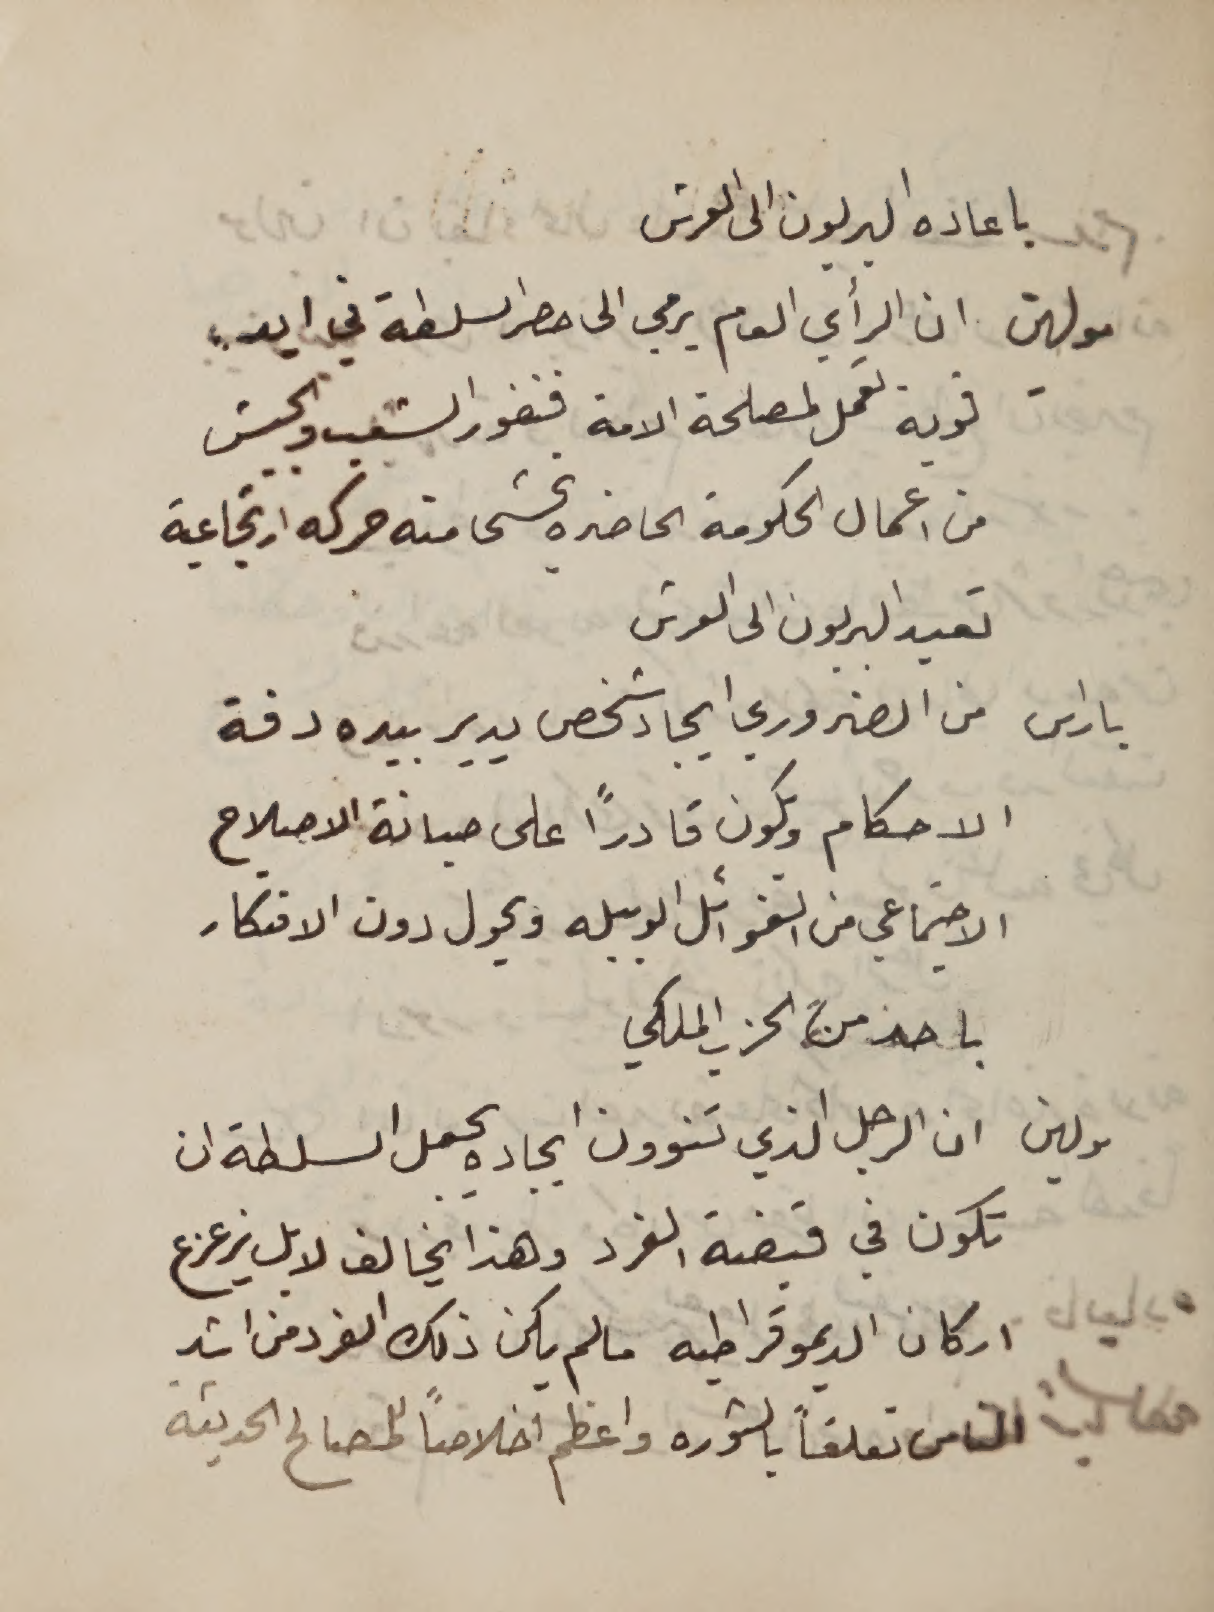 باعاده البربون الى العرش
مولهن ان الرأي العام يرمي الى حصر السلطة في ايد
قوية تعمل لمصلحة الامة فنفور الشعب والجيش
من اعمال الحكومة الحاضره يخشى منه حركه ارتجاعية
تعيد البربون الى العرش
باراس من الضروري ايجاد شخص يدير بيده دفة
الاحكام ويكون قادرًا على صيانة الاصلاح
الاجتماعي من الغوائل الوبيله ويحول دون الافتكار
باحد من الحزب الملكي
مولهن ان الرجل الذي تنوون ايجاده يجعل السلطة ان
تكون في قبضة الفرد وهذا يخالف لا بل يزعزع
اركان الديموقراطيه مالم يكن ذلك الفرد من اشد
الناس تعلقاً بالثوره واعظم اخلاصاً للمصالح الحديثة